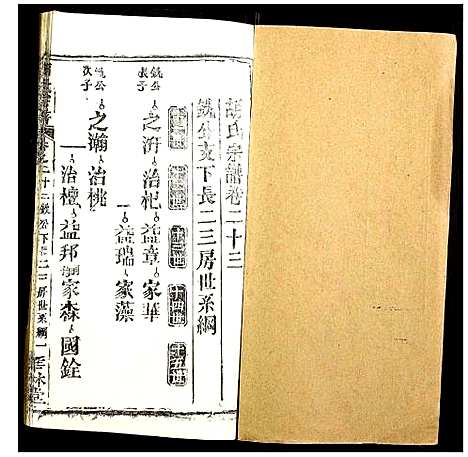 胡氏宗譜卷二十三
銑公支下長二三房世系綱
十二世 十三世 十四世 十五世
銑公長子 之洊 治杞 益章 家華
益瑞 家藻
銑公次子 之瀚 治桃
治檀 益邦 家森 國銓
卷之二十三 銑公下長二三房世系綱